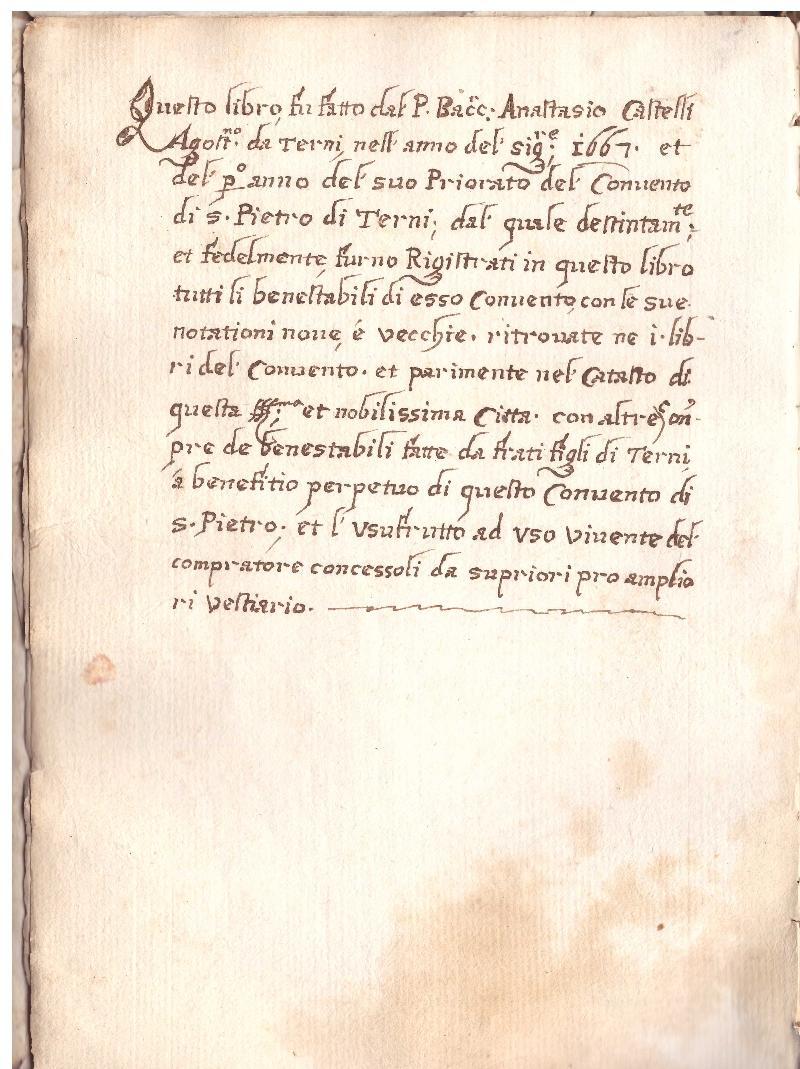 Questo libro, fu fatto dal P. Bacc:ʳᵉ Anastasio Castelli
Agost:ⁿᵒ da Terni, nell' anno del sig:ʳᵉ 1667. et
del p.º anno del suo Priorato del Conuento
di s. Pietro di Terni; dal quale destintam:ᵗᵉ
et fedelmente, furno Rigistrati in questo libro
tutti li benestabili di esso Conuento, con le sue
notationi noue, é vecchie. ritrouate ne i. lib-
ri del Conuento. et parimente nel Catasto di
questa et nobilissima Citta. con altre Com-
pre de benestabili fatte da frati figli di Terni
à benefitio perpetuo di questo Conuento di
s. Pietro; et l' vsufrutto ad vso viuente del
compratore concessoli da supriori pro amplio
ri vestiario.